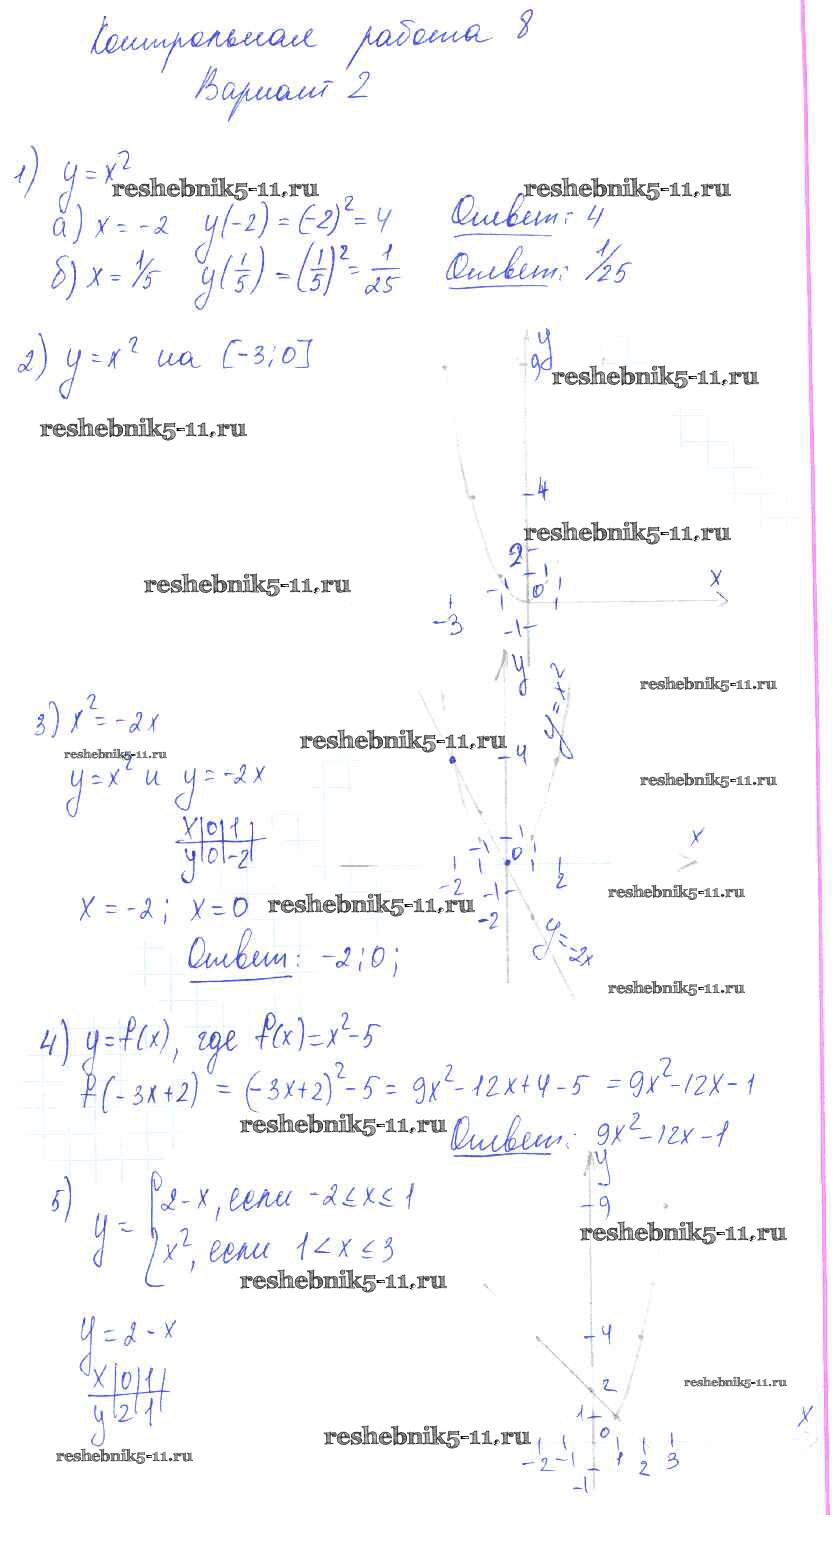 Контрольная работа 8
Вариант 2
1) y = x²
reshebnik5-11.ru reshebnik5-11.ru
а) x = -2 y(-2) = (-2)² = 4 Ответ: 4
б) x = 1/5 y(1/5) = (1/5)² = 1/25 Ответ: 1/25
2) y = x² на [-3; 0]
y
9
reshebnik5-11.ru
reshebnik5-11.ru
4
reshebnik5-11.ru
2
reshebnik5-11.ru
-1 1 0 1 x
-3 -1
y y = x²
reshebnik5-11.ru
3) x² = -2x
reshebnik5-11.ru
4
reshebnik5-11.ru
y = x² и y = -2x
reshebnik5-11.ru
x 0 1
y 0 -2
-1 1 0 x
-2 -1 2
-2
reshebnik5-11.ru
x = -2; x = 0 reshebnik5-11.ru
y = -2x
Ответ: -2; 0;
reshebnik5-11.ru
4) y = f(x), где f(x) = x² - 5
f(-3x+2) = (-3x+2)² - 5 = 9x² - 12x + 4 - 5 = 9x² - 12x - 1
reshebnik5-11.ru
Ответ: 9x² - 12x - 1
5) y = { 2 - x, если -2 ≤ x ≤ 1
x², если 1 < x ≤ 3
y
9
reshebnik5-11.ru
reshebnik5-11.ru
y = 2 - x
4
x 0 1
y 2 1
2
reshebnik5-11.ru
1
0 x
reshebnik5-11.ru
reshebnik5-11.ru
-2 -1 1 2 3
-1